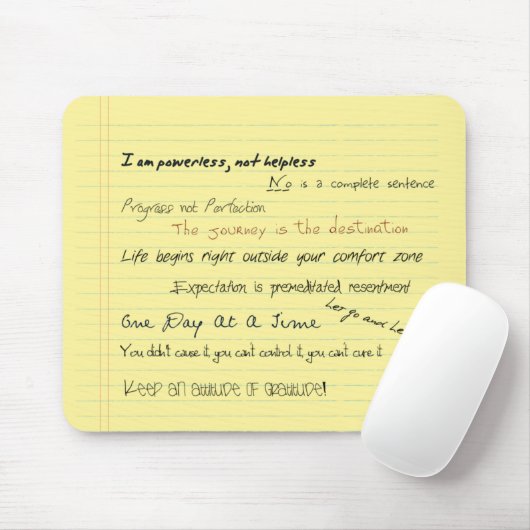 I am powerless, not helpless
No is a complete sentence
Progress not Perfection
The journey is the destination
Life begins right outside your comfort zone
Expectation is premeditated resentment
Let go and
One Day At A Time
You didn't cause it, you can't control it, you can't cure it
Keep an attitude of gratitude!